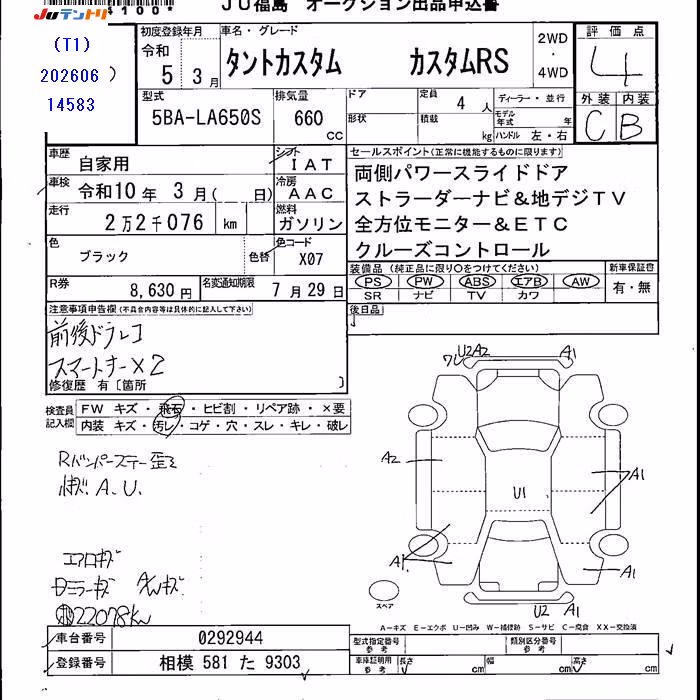 JU福島 オークション出品申込書
JUテントリ
(T1)
202606 )
14583
初度登録年月
令和
5 3月
車名・グレード
タントカスタム カスタムRS
2WD
・
4WD
評価点
4
外装 内装
C B
型式
5BA-LA650S
排気量
660
CC
ドア
形状
定員 4 人
積載 kg
ディーラー・並行
モデル年式 年
ハンドル 左・右
車歴
自家用
シフト
IAT
車検
令和10年 3月( 日)
冷房
AAC
走行
2万2千076 km
燃料
ガソリン
色
ブラック
色替
色コード
X07
R券
8,630 円
名変通知期限
7月29日
セールスポイント(正常に機能するものに限ります)
両側パワースライドドア
ストラーダーナビ&地デジTV
全方位モニター&ETC
クルーズコントロール
装備品(純正品に限り○をつけてください)
PS PW ABS エアB AW
SR ナビ TV カワ
新車保証書
有・無
後日品
注意事項申告欄(不具合内容等は具体的に記入して下さい)
前後ドラレコ
スマートキーX2
修復歴 有〔箇所 〕
検査員記入欄
FW キズ・飛石・ヒビ割・リペア跡・×要
内装 キズ・汚レ・コゲ・穴・スレ・キレ・破レ
Rバンパーステー歪ミ
A.U.
エアロキズ
ミラーキズ AWキズ
22078km
U2A2 A1
A2
U1
A1
A1
A1
U2 A1
スペア
A-キズ E-エクボ U-凹み W-補修跡 S-サビ C-腐食 XX-交換済
車台番号
0292944
登録番号
相模 581 た 9303
型式指定番号
参考
類別区分番号
参考
車庫証明用
参考
長さ cm
幅 cm
高さ cm